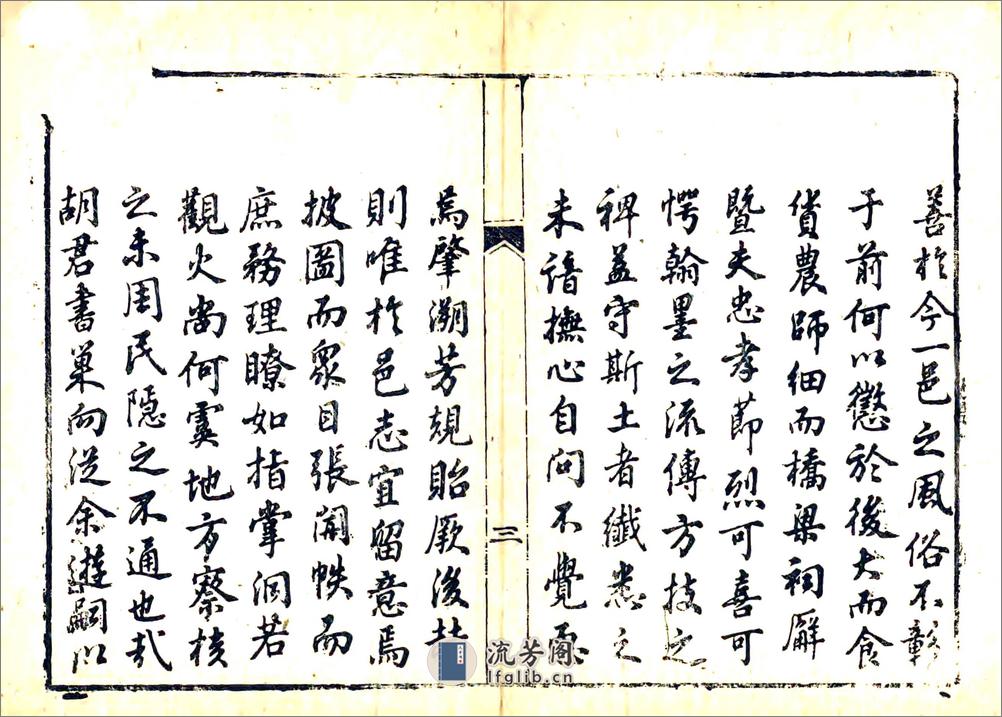 善於今一邑之風俗不彰
于前何以懲於後大而食
貨農師細而橋梁祠廨
暨夫忠孝節烈可喜可
愕翰墨之流傳方技之
裨益守斯土者纖悉之
未諳撫心自问不覺
三
焉肇溯芳規貽厥後
則唯於邑志宜留意焉
披圖而眾目張開帙而
庶務理瞭如指掌洞若
觀火尚何虞地方察核
之未周民隱之不通也哉
胡君書巢向從余遊嗣以
流芳阁
lfglib.cn